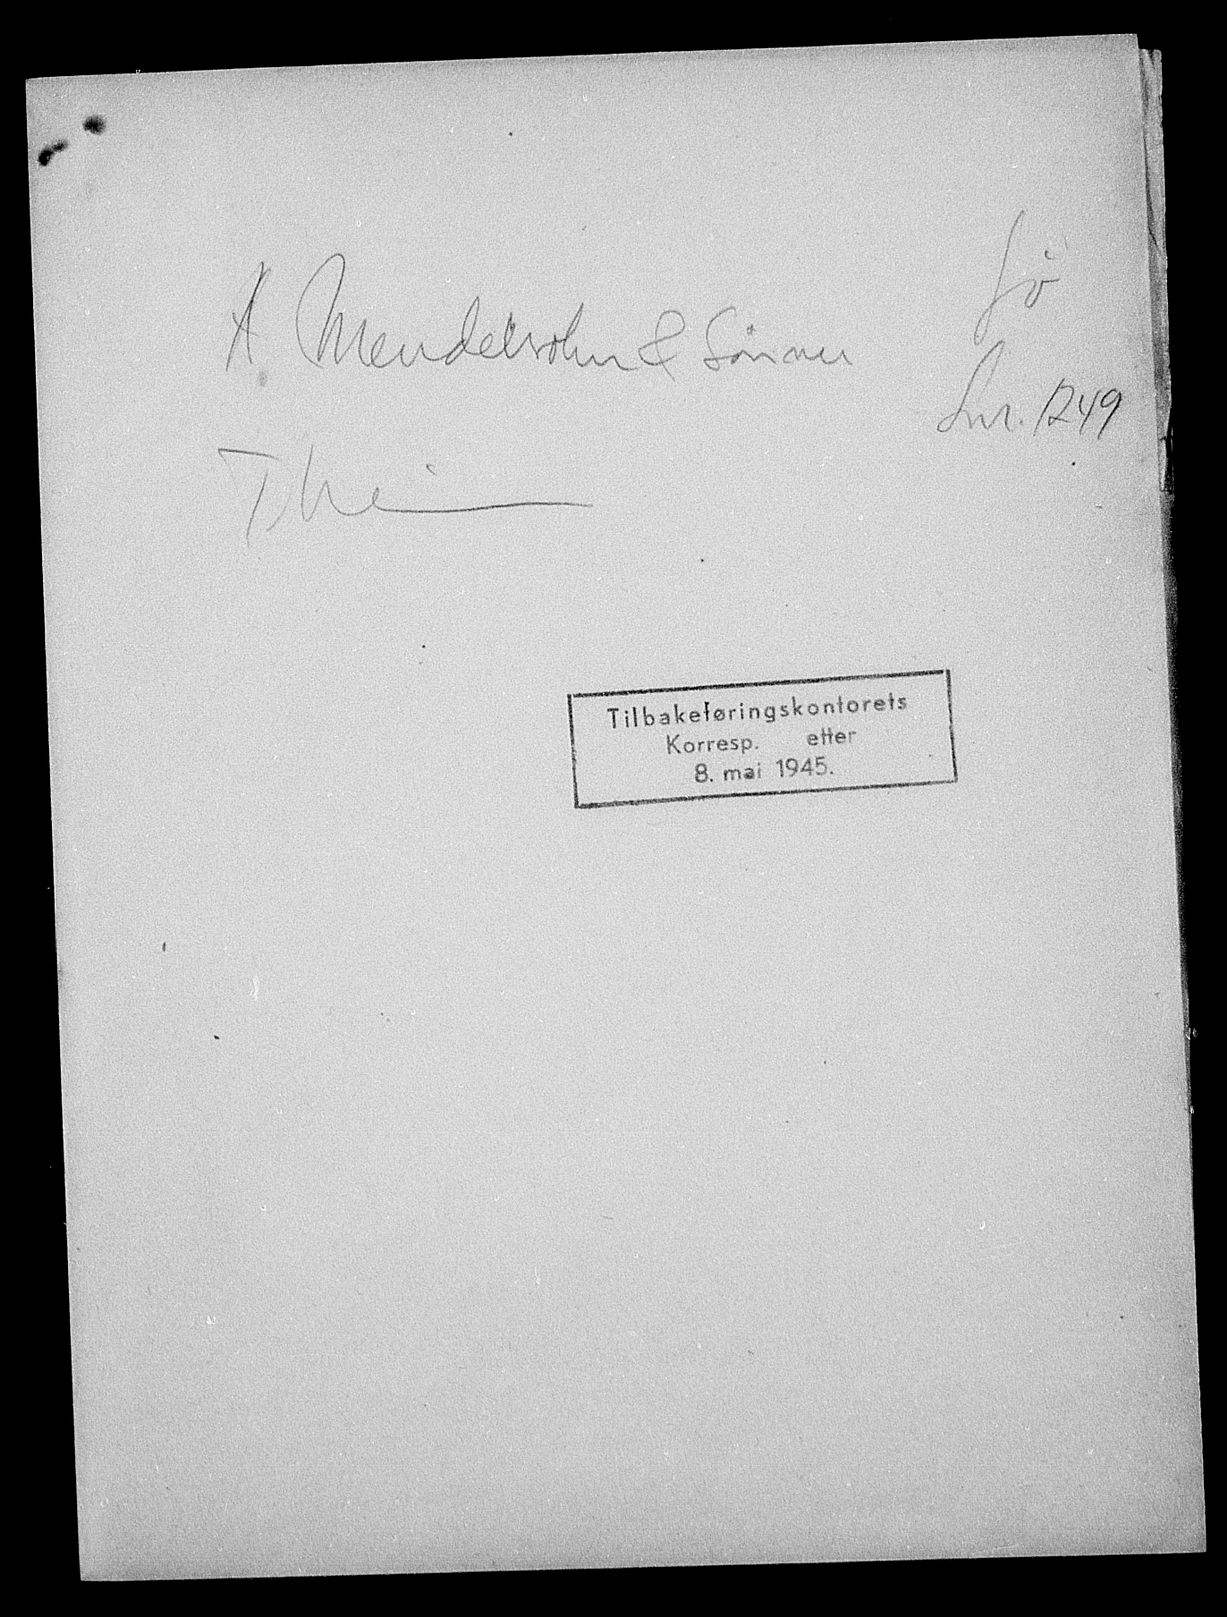 A Mendelsohn & Sönner
Jö
Lnr. 1249
T.heim
Tilbakeføringskontorets
Korresp. etter
8. mai 1945.